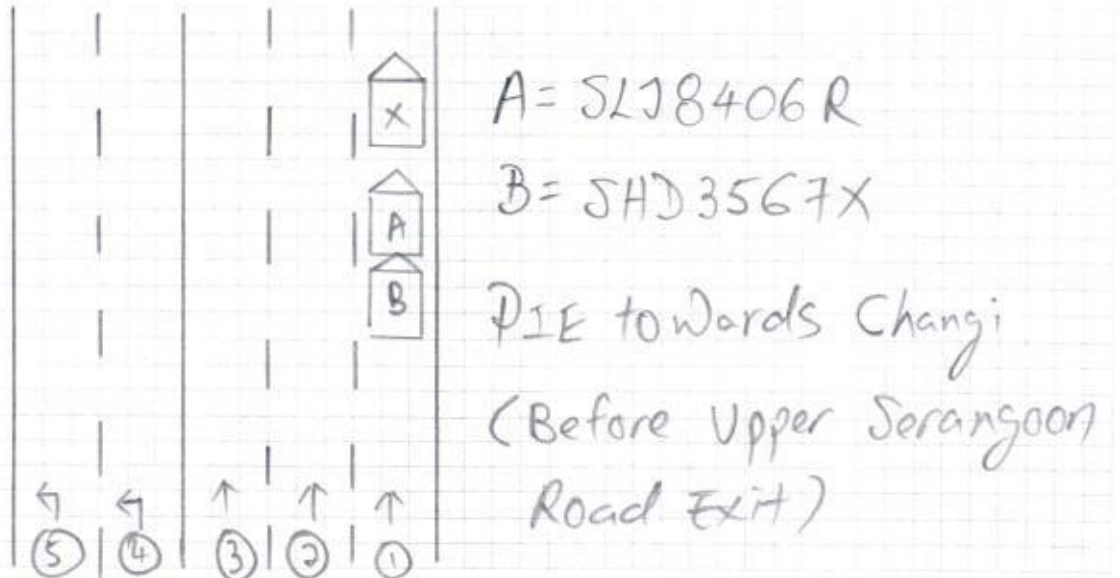 X
A = SLJ8406R
A
B = SHD3567X
B
PIE towards Changi
(Before Upper Serangoon
Road Exit)
5 4 3 2 1